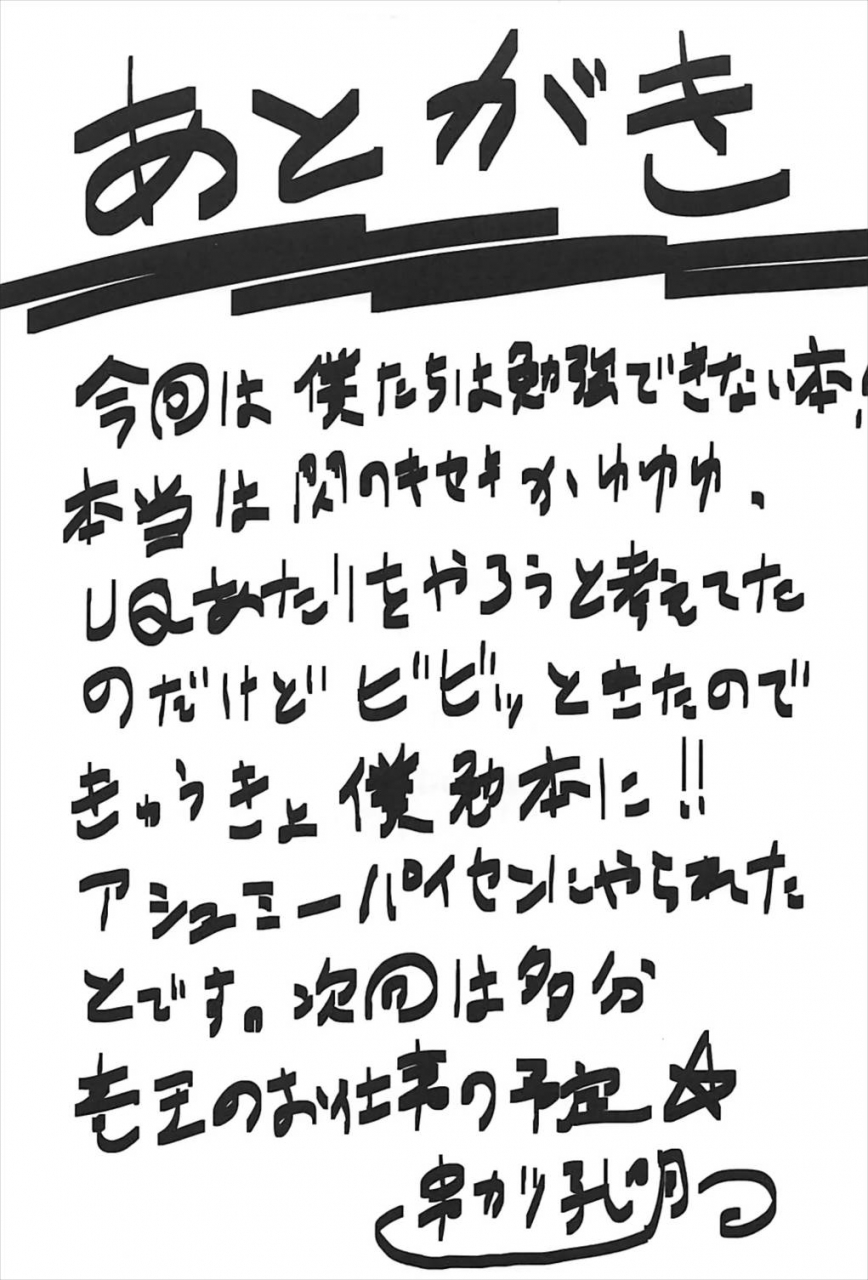 あとがき
今回は僕たちは勉強できない本!
本当は閃のキセキかゆゆゆ、
UQあたりをやろうと考えてた
のだけどビビッときたので
きゅうきょ僕勉本に!!
アシュミーパイセンにやられた
とです。次回は多分
竜王のお仕事の予定☆
串カツ孔明